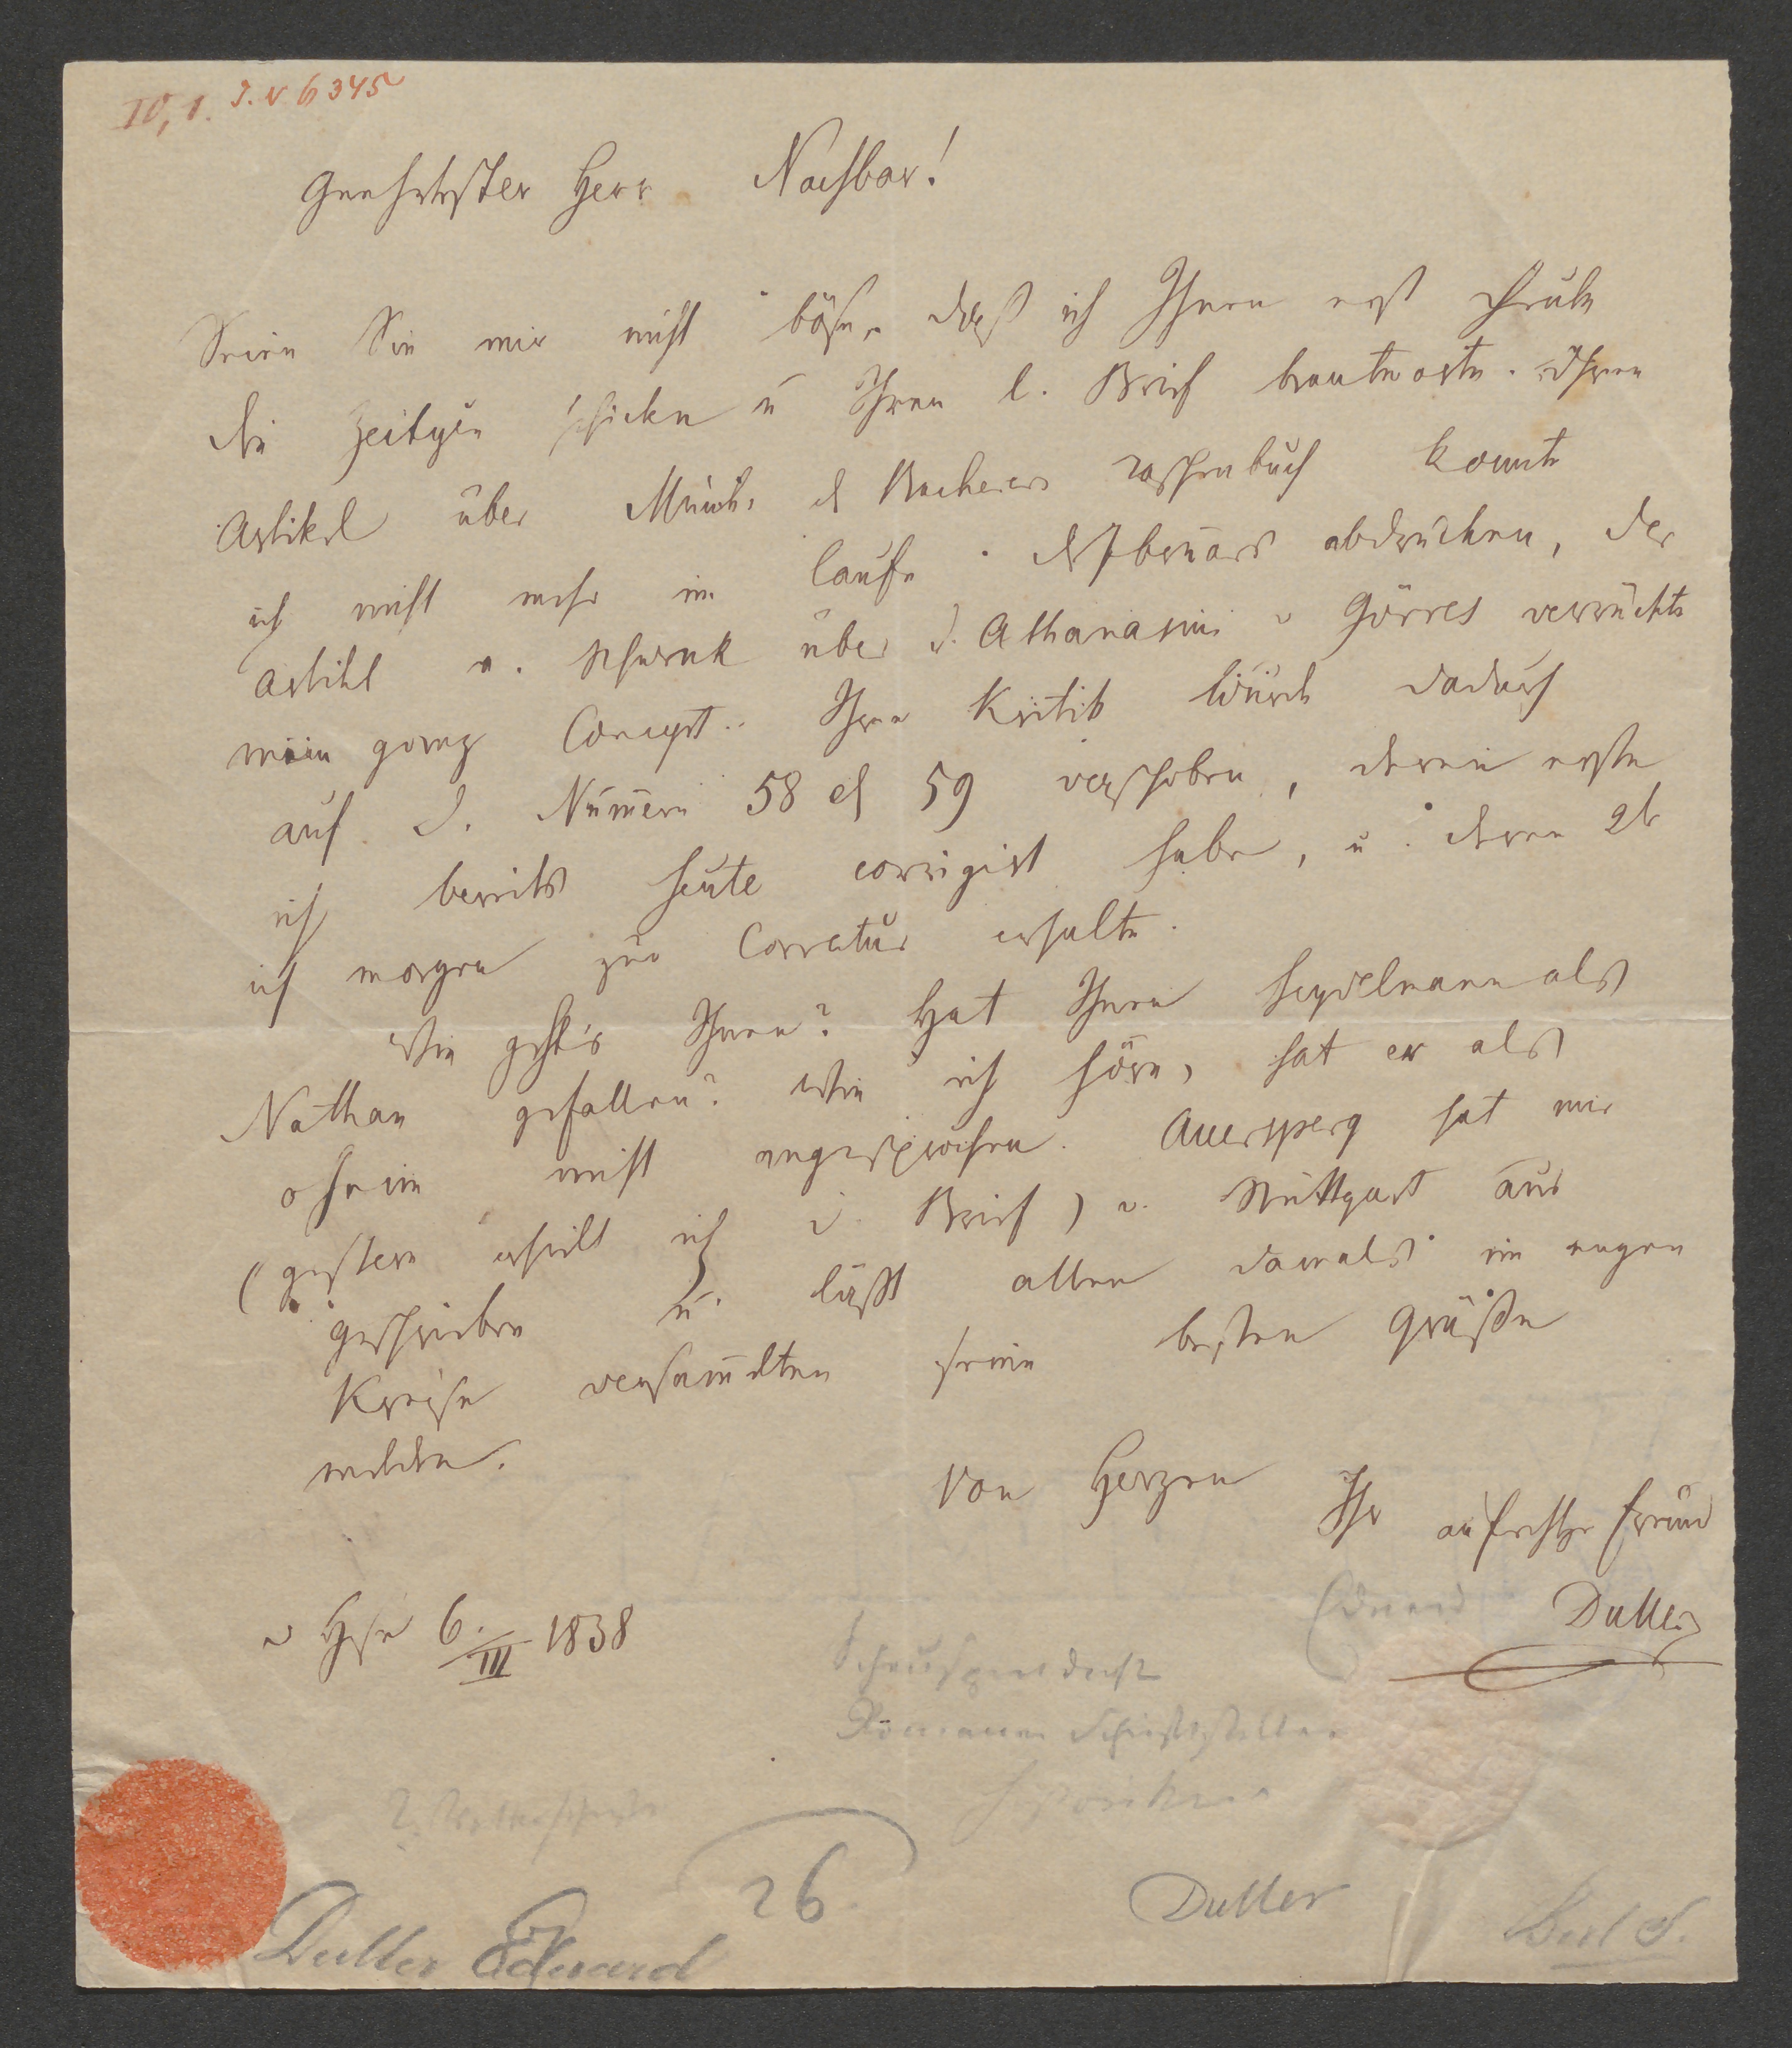 IV, 1. J. N 6345
Geehrtester Herr Nachbar!
Seien Sie mir nicht böse, daß ich Ihnen erst heute
die Zeitgen schicke u Ihren l. Brief beantworte. Ihren
Artikel über Münchs & Bacherers Taschenbuch konnte
ich nicht mehr im Laufe Februars abdrucken, der
Artikel v. über d. Athanasius v Görres verrückte
mein ganz Concept. Ihre Kritik wurde dadurch
auf d. Numern 58 & 59 verschoben, deren erste
ich bereits heute corrigirt habe, u. deren 2te
ich morgen zur Correctur erhalte.
Wie geht's Ihnen? Hat Ihnen Seydelmann als
Nathan gefallen? Wie ich höre, hat er als
nicht angesprochen. Auersperg hat mir
(gestern erhielt ich d. Brief) v. Stuttgart aus
geschrieben u. läßt allen damals im engen
Kreise versam̄elten seine besten Grüße
melden.
Von Herzen
Ihr aufrichtger Freund
Eduard Duller
v Hse 6./III 1838
Romanen Schriftsteller
Historiker
26.
Duller
Duller Eduard